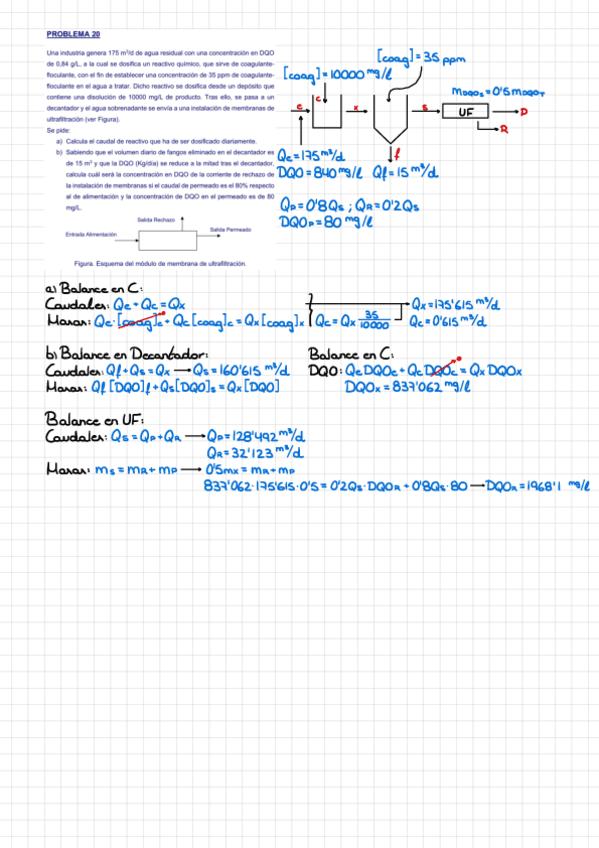 PROBLEMA 20
Una industria genera 175 m³/d de agua residual con una concentración en DQO
de 0,84 g/L, a la cual se dosifica un reactivo químico, que sirve de coagulante-
floculante, con el fin de establecer una concentración de 35 ppm de coagulante-
floculante en el agua a tratar. Dicho reactivo se dosifica desde un depósito que
contiene una disolución de 10000 mg/L de producto. Tras ello, se pasa a un
decantador y el agua sobrenadante se envía a una instalación de membranas de
ultrafiltración (ver Figura).
Se pide:
a) Calcula el caudal de reactivo que ha de ser dosificado diariamente.
b) Sabiendo que el volumen diario de fangos eliminado en el decantador es
de 15 m³ y que la DQO (Kg/día) se reduce a la mitad tras el decantador,
calcula cuál será la concentración en DQO de la corriente de rechazo de
la instalación de membranas si el caudal de permeado es el 80% respecto
al de alimentación y la concentración de DQO en el permeado es de 80
mg/L.
Salida Rechazo
Salida Permeado
Entrada Alimentación
Figura. Esquema del módulo de membrana de ultrafiltración.
[coag]=35 ppm
[coag]=10000 mg/l
mDQOs=0'5mDQOT
e
c
x
s
UF
P
R
f
Qe=175m³/d
DQO=840mg/l Qf=15m³/d
Qp=0'8Qs; QR=0'2Qs
DQOp=80 mg/l
a) Balance en C:
Caudales: Qe+Qc=Qx
Qx=175'615 m³/d
Masas: Qe·[coag]e+Qc[coag]c=Qx[coag]x
Qc=Qx 35/10000
Qc=0'615 m³/d
b) Balance en Decantador:
Caudales: Qf+Qs=Qx → Qs=160'615 m³/d
Masas: Qf[DQO]f+Qs[DQO]s=Qx[DQO]
Balance en C:
DQO: QeDQOe+QcDQOc=QxDQOx
0
DQOx=837'062 mg/l
Balance en UF:
Caudales: Qs=Qp+QR → Qp=128'492 m³/d
QR=32'123 m³/d
Masas: ms=mR+mp → 0'5mx=mR+mp
837'062·175'615·0'5=0'2Qs·DQOR+0'8Qs·80 → DQOR=1968'1 mg/l